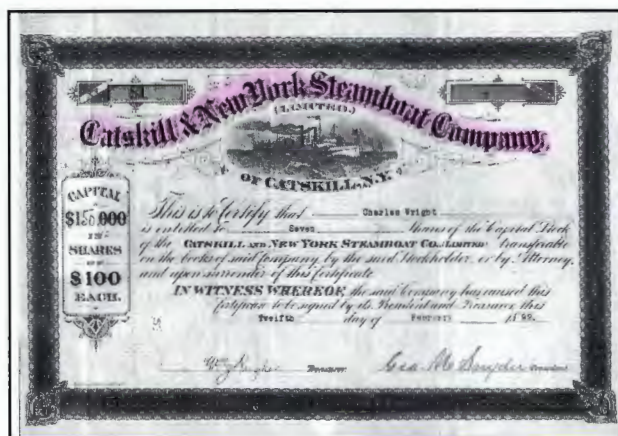 51
Catskill & New York Steamboat Company,
(LIMITED.)
OF CATSKILL, N.Y.
CAPITAL
$150,000
IN
SHARES
OF
$100
EACH.
This is to Certify that Charles Wright
is entitled to Seven Shares of the Capital Stock
of the CATSKILL AND NEW YORK STEAMBOAT CO. (LIMITED) transferable
on the books of said Company by the said Stockholder, or by Attorney,
and upon surrender of this Certificate
IN WITNESS WHEREOF, the said Company has caused this
Certificate to be signed by its President and Treasurer this
Twelfth day of February 1899.
Treasurer Geo. M. Snyder President